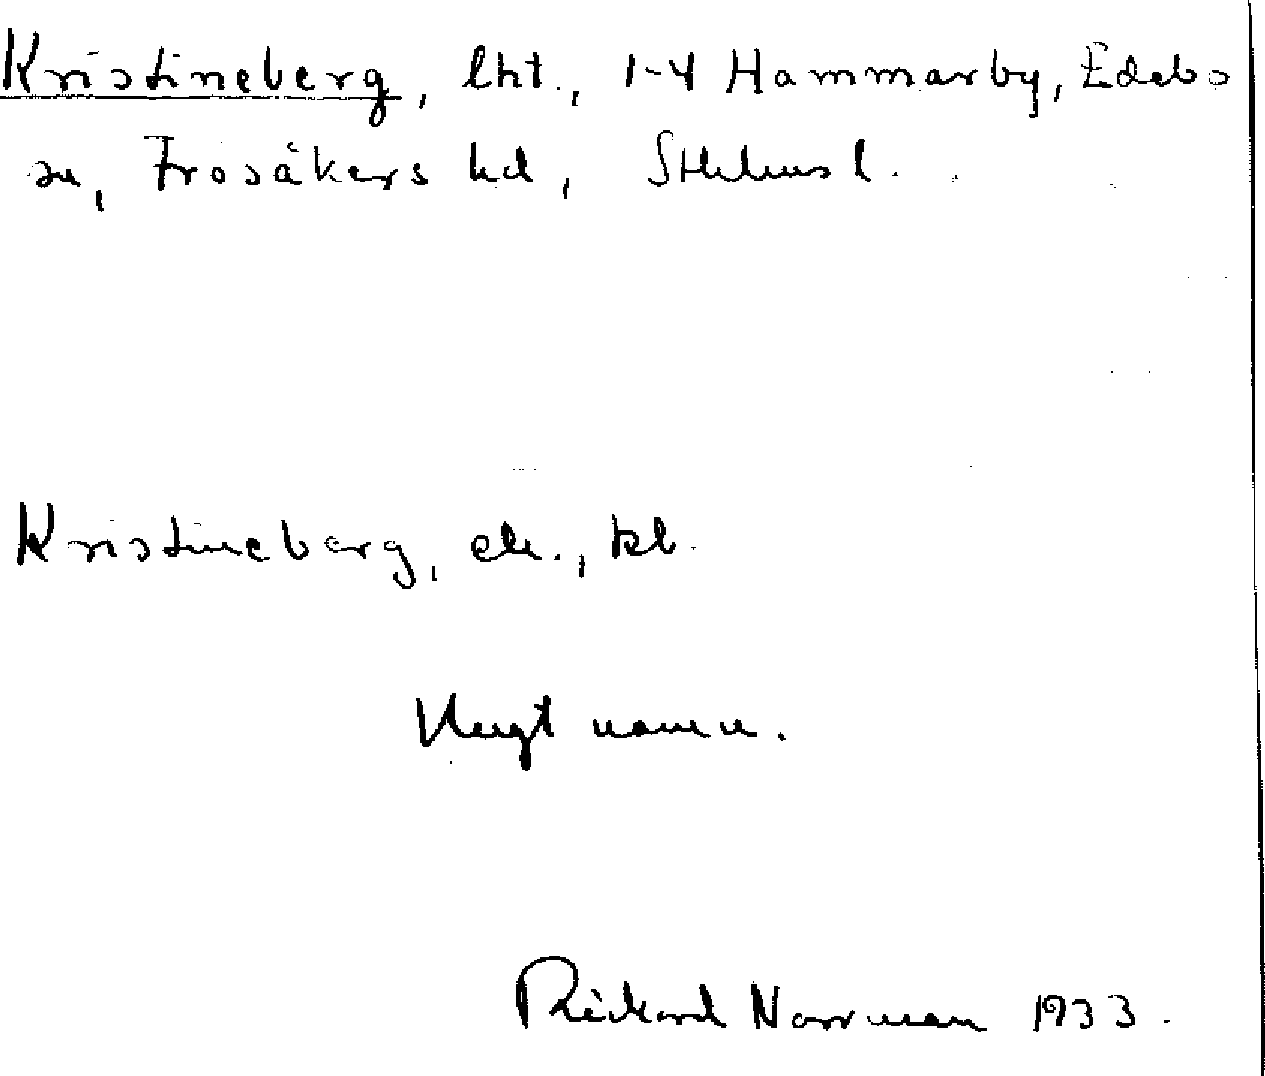 Kristineberg, lht., 1-4 Hammarby, Edebo
sn, Frosåkers hd, Sthlms l.
Kristineberg, ek., kl.
Ungt namn.
Rickard Norrman 1933.